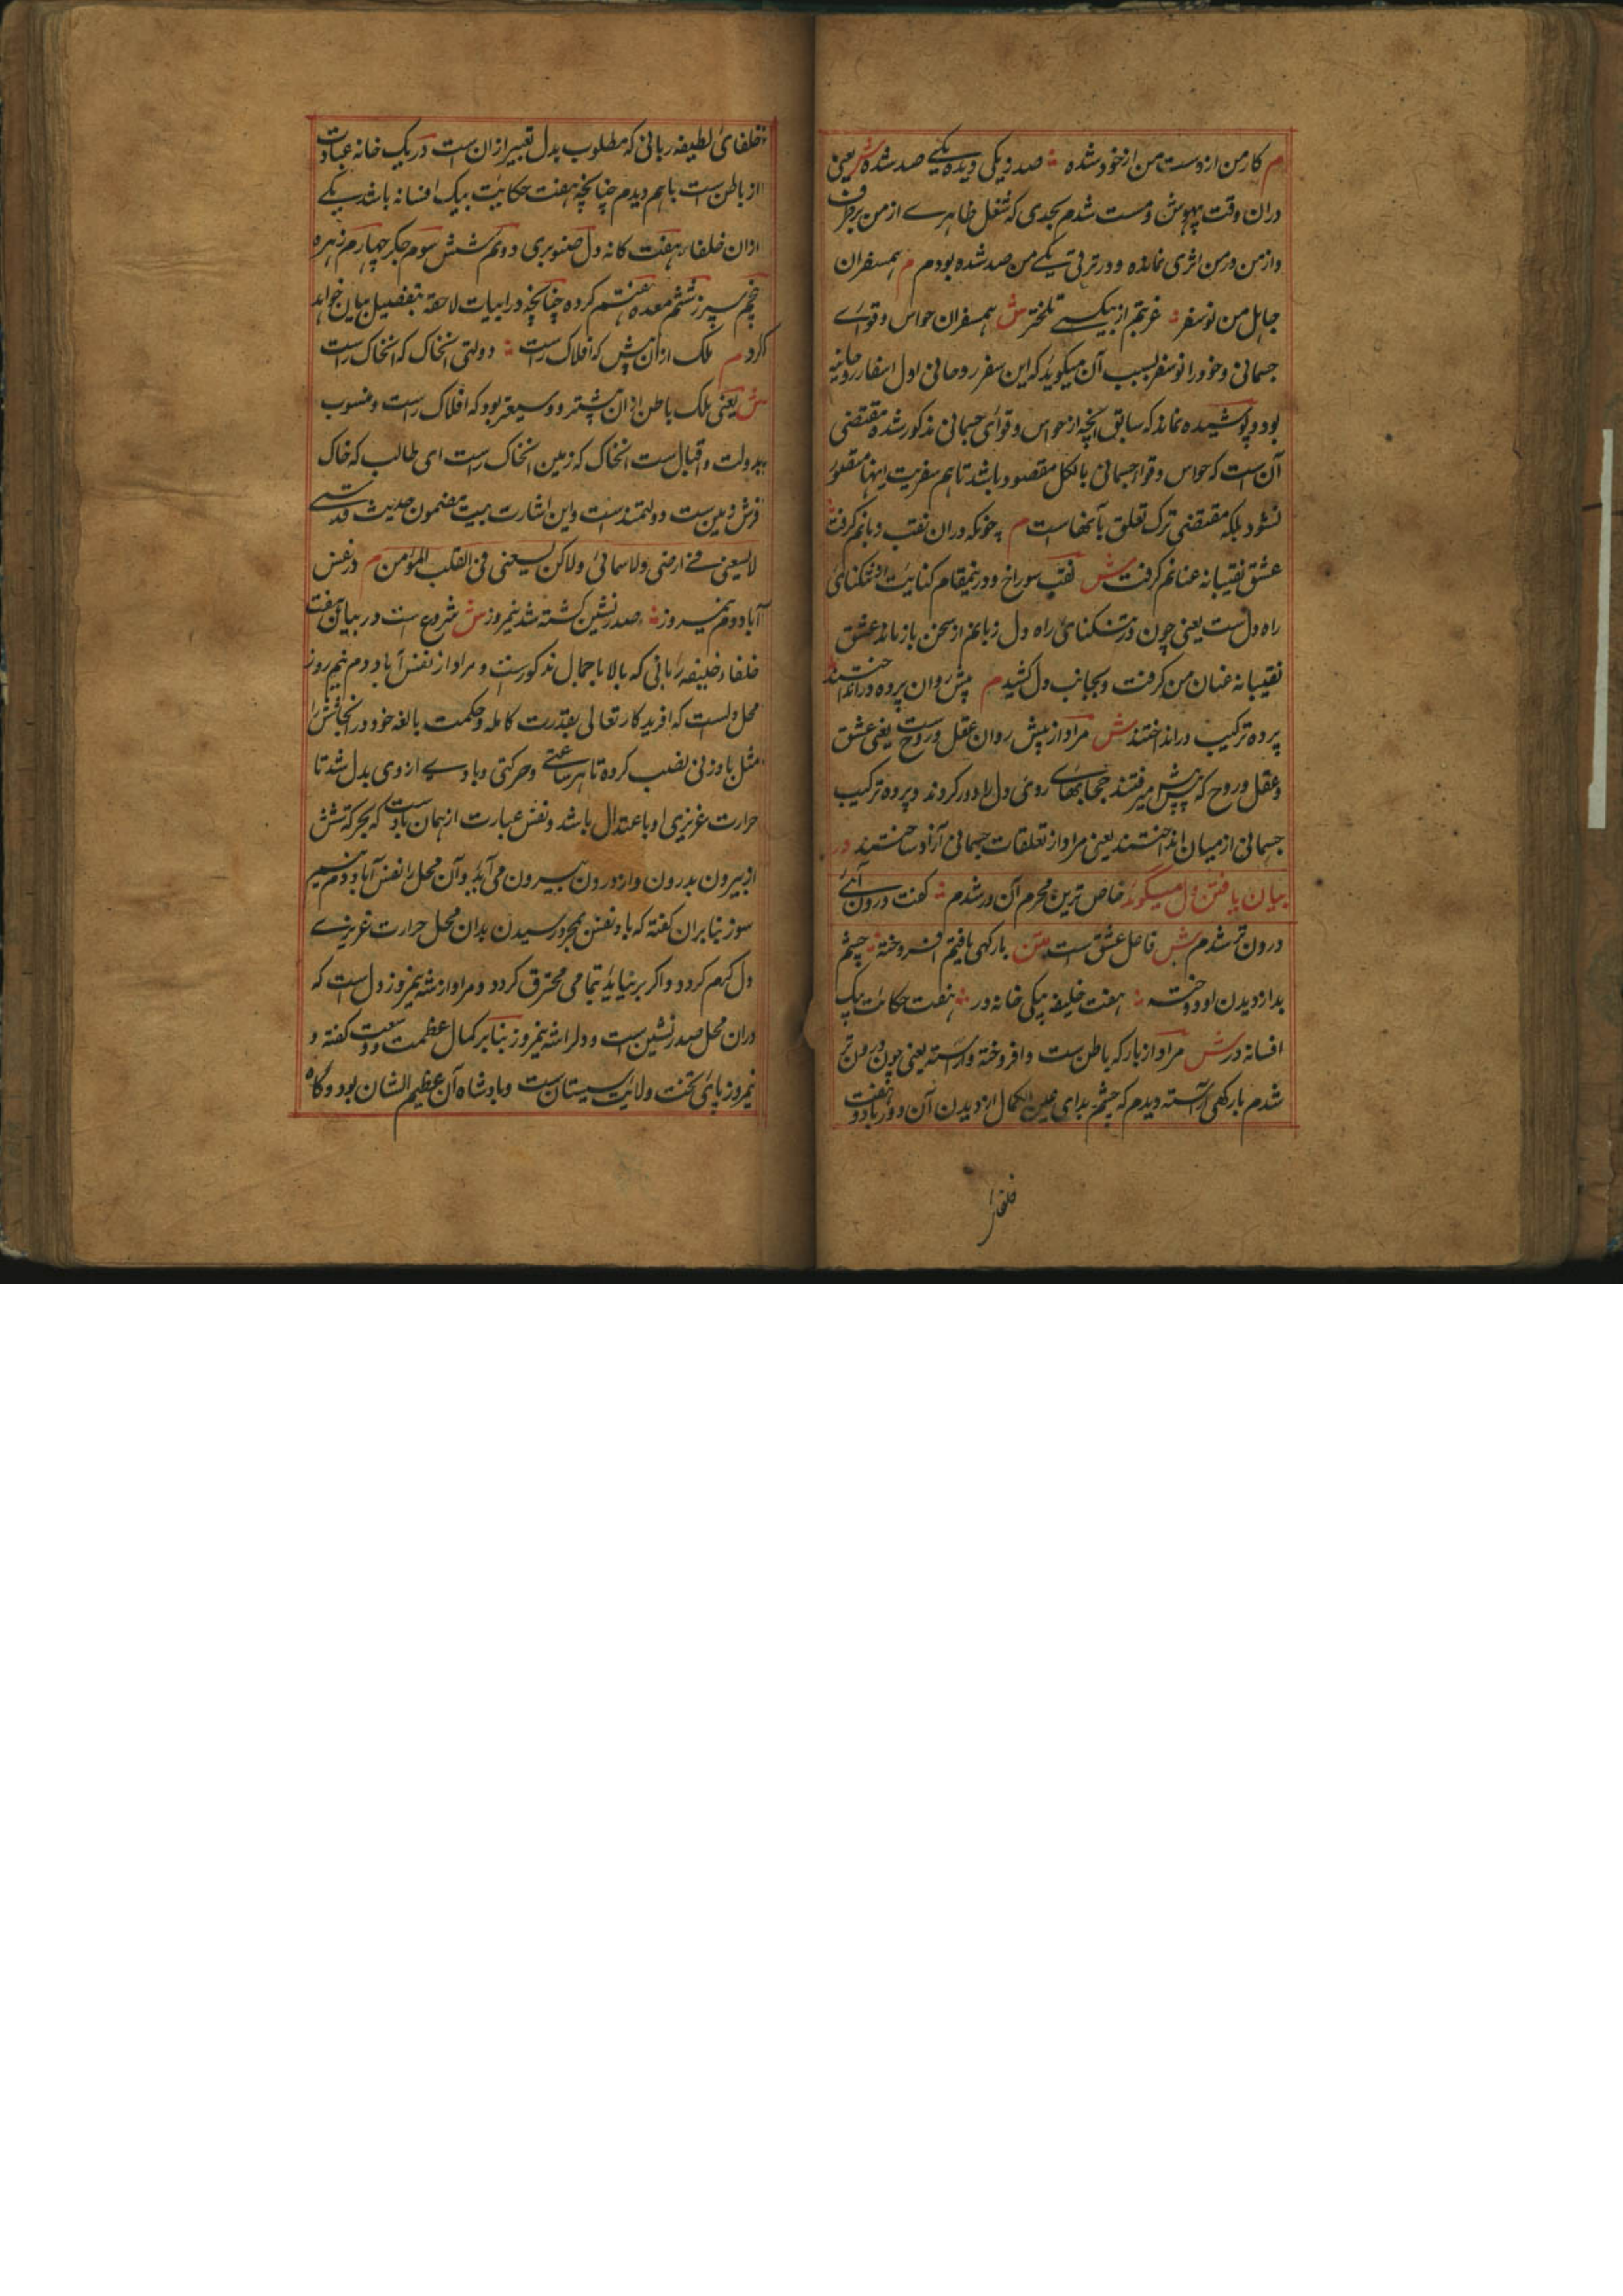 م کار من از دست من از خود شده ؞ صد و یکی دیده یکے صد شده ش یعنی
دران وقت بیهوش و مست شدم بحدی که شغل ظاهرے از من برطرف
و از من در من اثری نمانده و در ترقی یکے من صد شده بودم م همسفران
جاهل من نوسفر ؞ غربتم از بیکسے تلختر ش همسفران حواس و قوائے
جسمانی و خود را نوسفر بسبب آن میگوید که این سفر روحانی اول اسفار روحانیه
بود و پوشیده نماند که سابق آنچه از حواس و قوای جسمانی مذکور شده مقتضی
آنست که حواس و قواء جسمانی بالکل مقصود باشد تا هم سفریت اینها مقصور
نشود بلکه مقتضی ترک تعلق بآنهاست م چونکه دران نقب زبانم گرفت
عشق نقیبانه عنانم گرفت ش نقب سوراخ و درینمقام کنایت از تنکنای
راه دل ست یعنی چون در تنکنای راه دل زبانم از سخن باز ماند عشق
نقیبانه عنان من گرفت و بجانب دل کشید م پیش روان پرده در انداختند
پرده ترکیب در انداختند ش مراد از پیش روان عقل و روح ست یعنی عشق
و عقل و روح که پیش پیش میرفتند حجابهای روی دل را دور کردند و پرده ترکیب
جسمانی از میان انداختند یعنی مرا از تعلقات جسمانی آزاد ساختند در
بیان یافتن دل میگوید خاص ترین محرم آن در شدم ؞ گفت درون آئے
درون تر شدم ش فاعل عشق ست متن بارگهی یافتم افروخته ؞ چشم
بد از دیدن او دوخته ؞ هفت خلیفه بیکی خانه در ؞ هفت حکایت بیک
افسانه در ش مراد از بارگه باطن ست و افروخته و آراسته یعنی چون درون تر
شدم بارگهی آراسته دیدم که چشم بدای عین الکمال از دیدن آن دور باد و هفت
خلفاء
خلفای لطیفه ربانی که مطلوب بدل تعبیر از ان ست در یک خانه عبادت
از باطن ست باهم دیدم چنانچه هفت حکایت بیک افسانه باشد یکے
ازان خلفاء هفت گانه دل صنوبری دوئم شش سوم جگر چهارم زهره
پنجم سپرز ششم معده هفتم گرده چنانچه در ابیات لاحقه بتفصیل بیان خواهد
کرد م ملک ازان پیش که افلاک راست ؞ دولتی انخاک که انخاک راست
ش یعنی ملک باطن ازان پیشتر و وسیعتر بود که افلاک راست و منسوب
بدولت و اقبال ست انخاک که زمین انخاک راست ای طالب که خاک
فرش زمین ست دولتمندست و این اشارت بیت مضمون حدیث قدسی
لایسعنی فے ارضی ولا سمائی ولاکن یسعنی فی القلب المؤمن م در نفس
آباد دم نیم روز ؞ صدر نشین گشته شه نیمروز ش شروع ست در بیان هفت
خلفاء خلیفه ربانی که بالا باجمال مذکورست و مراد از نفس آباد دم نیم روز
محل دلست که افریدکار تعالی بقدرت کامله و حکمت بالغه خود در انجا شش را
مثل بادزنی نصب کرده تا هر ساعتے و حرکتی و بادے از وی بدل شد تا
حرارت غریزی او باعتدال باشد و نفس عبارت از همان بادست که بحرکت شش
از بیرون بدرون و از درون بیرون می آید و آن محل را نفس آباد و دم نیم
سوز بنابران گفته که باد نفس بمجرد رسیدن بدان محل حرارت غریزے
دل گرم گردد و اگر برنیاید بتمامی محترق گردد و مراد از شه نیمروز دل ست که
دران محل صدر نشین ست و دل را شه نیمروز بنابر کمال عظمت و وسعت گفته و
نیمروز پای تخت ولایت سیستان ست و بادشاه آن عظیم الشان بود و گاه